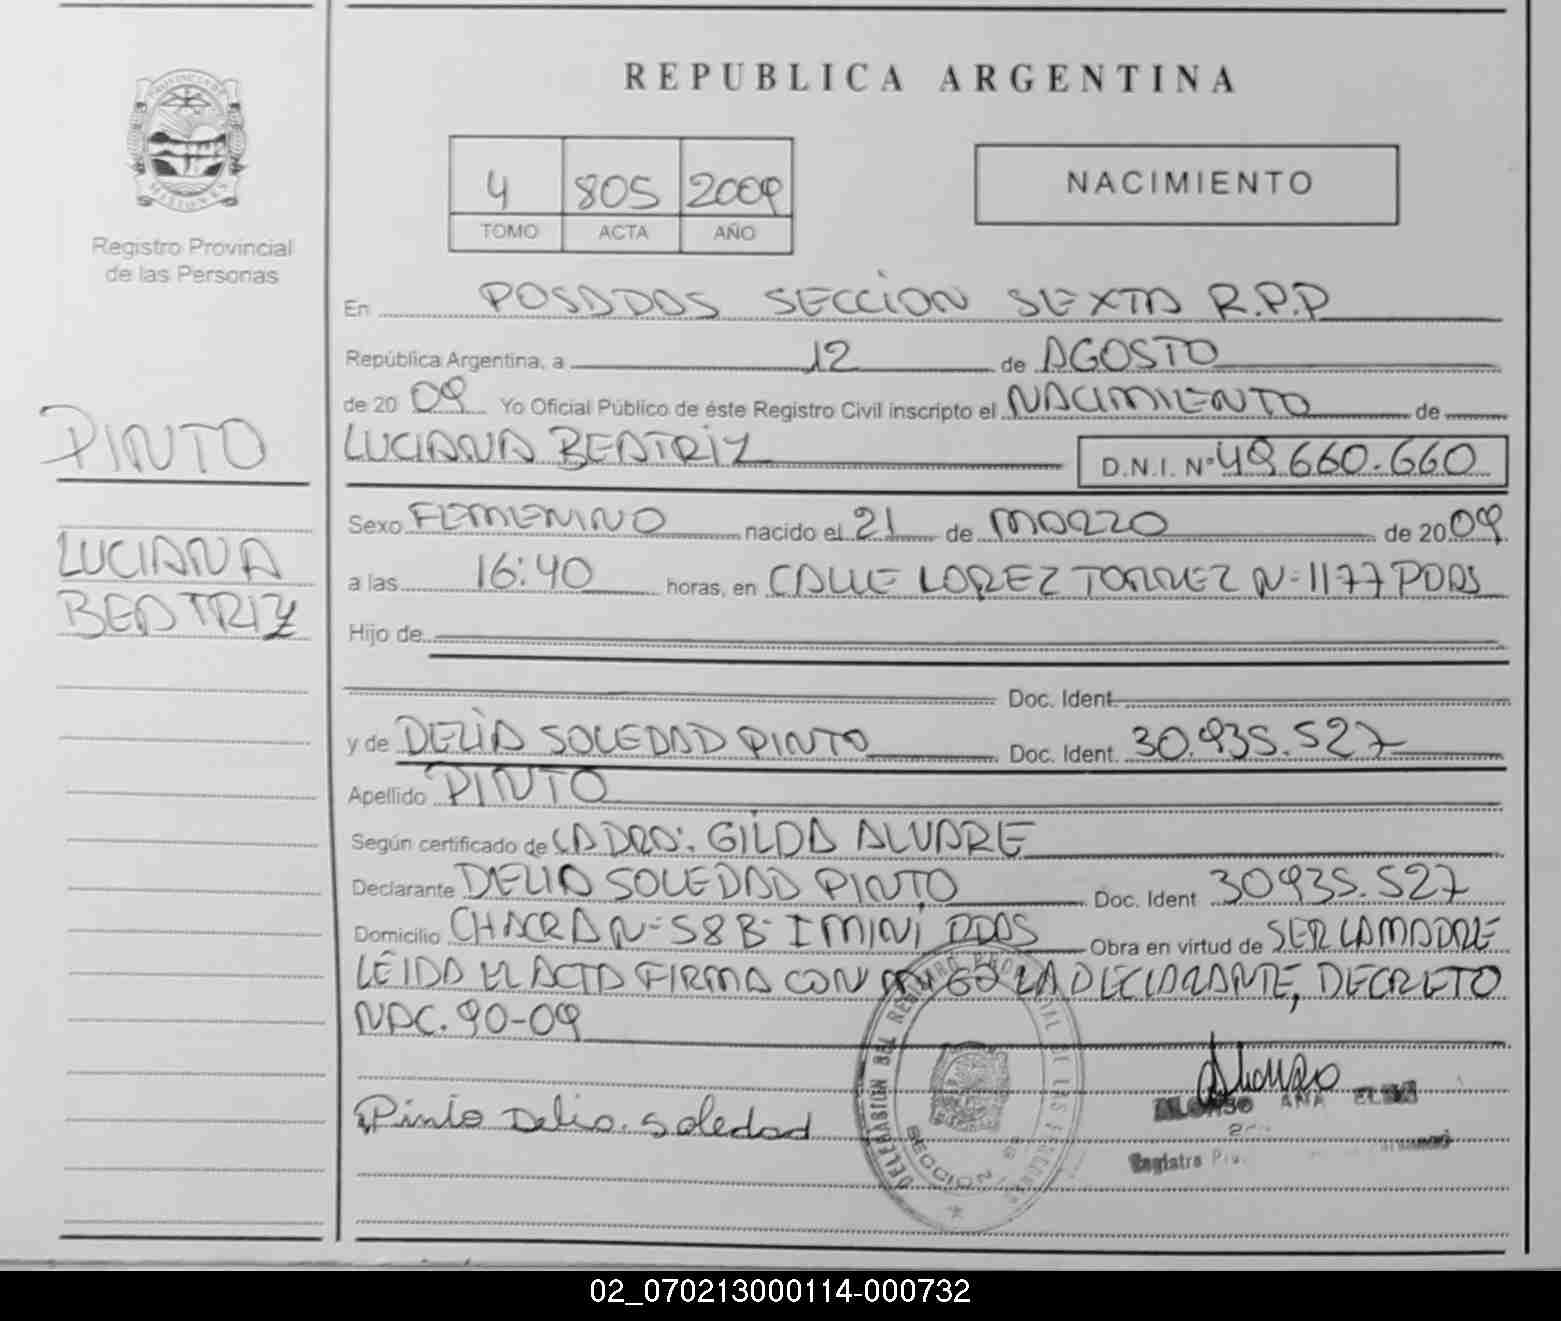 REPUBLICA ARGENTINA
PROVINCIA DE MISIONES
Registro Provincial
de las Personas
4 805 2009
TOMO ACTA AÑO
NACIMIENTO
En POSADAS SECCION SEXTA R.P.P
República Argentina, a 12 de AGOSTO
de 20 09 Yo Oficial Público de éste Registro Civil inscripto el NACIMIENTO de
LUCIANA BEATRIZ D.N.I. Nº 49.660.660
PINTO
LUCIANA
BEATRIZ
Sexo FEMENINO nacido el 21 de MARZO de 20 09
a las 16:40 horas, en CALLE LOPEZ TORREZ N-1177 PDAS
Hijo de
Doc. Ident.
y de DELIA SOLEDAD PINTO Doc. Ident. 30.935.527
Apellido PINTO
Según certificado de LA DRA. GILDA ALVARE
Declarante DELIA SOLEDAD PINTO Doc. Ident 30935.527
Domicilio CHACRA N-58 B- I MINI PDAS Obra en virtud de SER LA MADRE
LEIDA EL ACTA FIRMA CON LA DECLARANTE, DECRETO
NAC. 90-09
Pinto Delia Soledad
Alonso
ALONSO ANA
Registro
SECCION
02_070213000114-000732